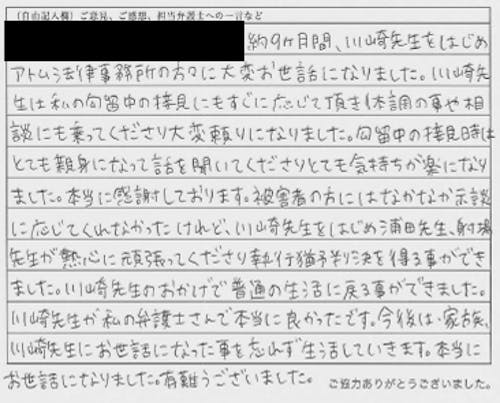 (自由記入欄)ご意見、ご感想、担当弁護士への一言など
約9ヶ月間、川崎先生をはじめ
アトム法律事務所の方々に大変お世話になりました。川崎先
生は私の勾留中の接見にもすぐに応じて頂き体調の事や相
談にも乗ってくださり大変頼りになりました。勾留中の接見時は
とても親身になって話を聞いてくださりとても気持ちが楽になり
ました。本当に感謝しております。被害者の方にはなかなか示談
に応じてくれなかったけれど、川崎先生をはじめ浦田先生、射場
先生が熱心に頑張ってくださり執行猶予判決を得る事ができ
ました。川崎先生のおかげで普通の生活に戻る事ができました。
川崎先生が私の弁護士さんで本当に良かったです。今後は、家族、
川崎先生にお世話になった事を忘れず生活していきます。本当に
お世話になりました。有難うございました。
ご協力ありがとうございました。